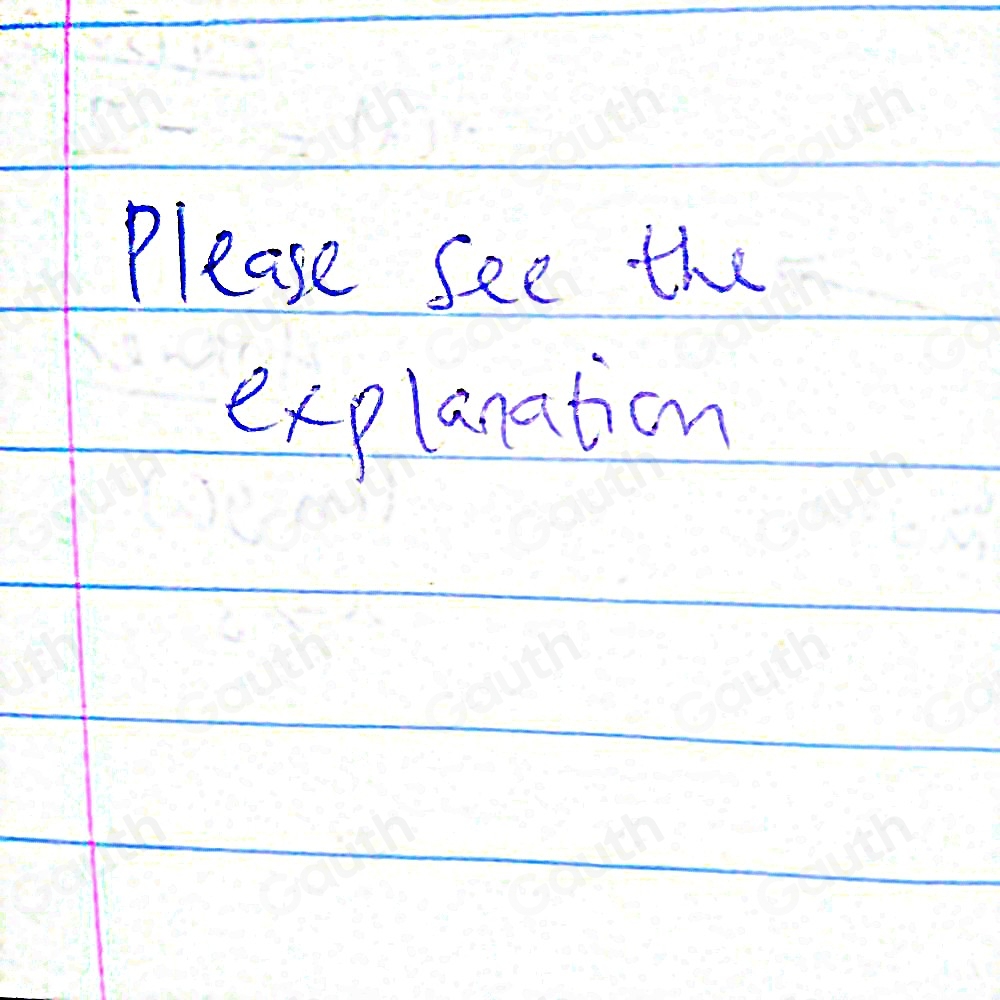 Please see the
explanation